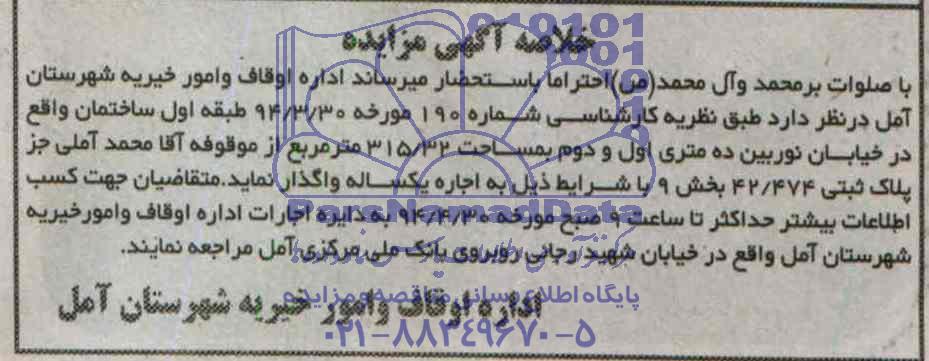 خلاصه آگهی مزایده
با صلوات برمحمد وآل محمد(ص)احتراما باستحضار میرساند اداره اوقاف وامور خیریه شهرستان
آمل درنظر دارد طبق نظریه کارشناسی شماره ۱۹۰ مورخه ۹۴/۳/۳۰ طبقه اول ساختمان واقع
در خیابان نوربین ده متری اول و دوم بمساحت ۳۱۵/۳۲ مترمربع از موقوفه آقا محمد آملی جز
پلاک ثبتی ۴۲/۴۷۴ بخش ۹ با شرایط ذیل به اجاره یکساله واگذار نماید.متقاضیان جهت کسب
اطلاعات بیشتر حداکثر تا ساعت ۹ صبح مورخه ۹۴/۴/۳۰ به دایره اجارات اداره اوقاف وامورخیریه
شهرستان آمل واقع در خیابان شهید رجائی روبروی بانک ملی مرکزی آمل مراجعه نمایند.
اداره اوقاف وامور خیریه شهرستان آمل
ParsNamadData
پایگاه اطلاع رسانی مناقصه و مزایده
۰۲۱-۸۸۳۴۹۶۷۰-۵